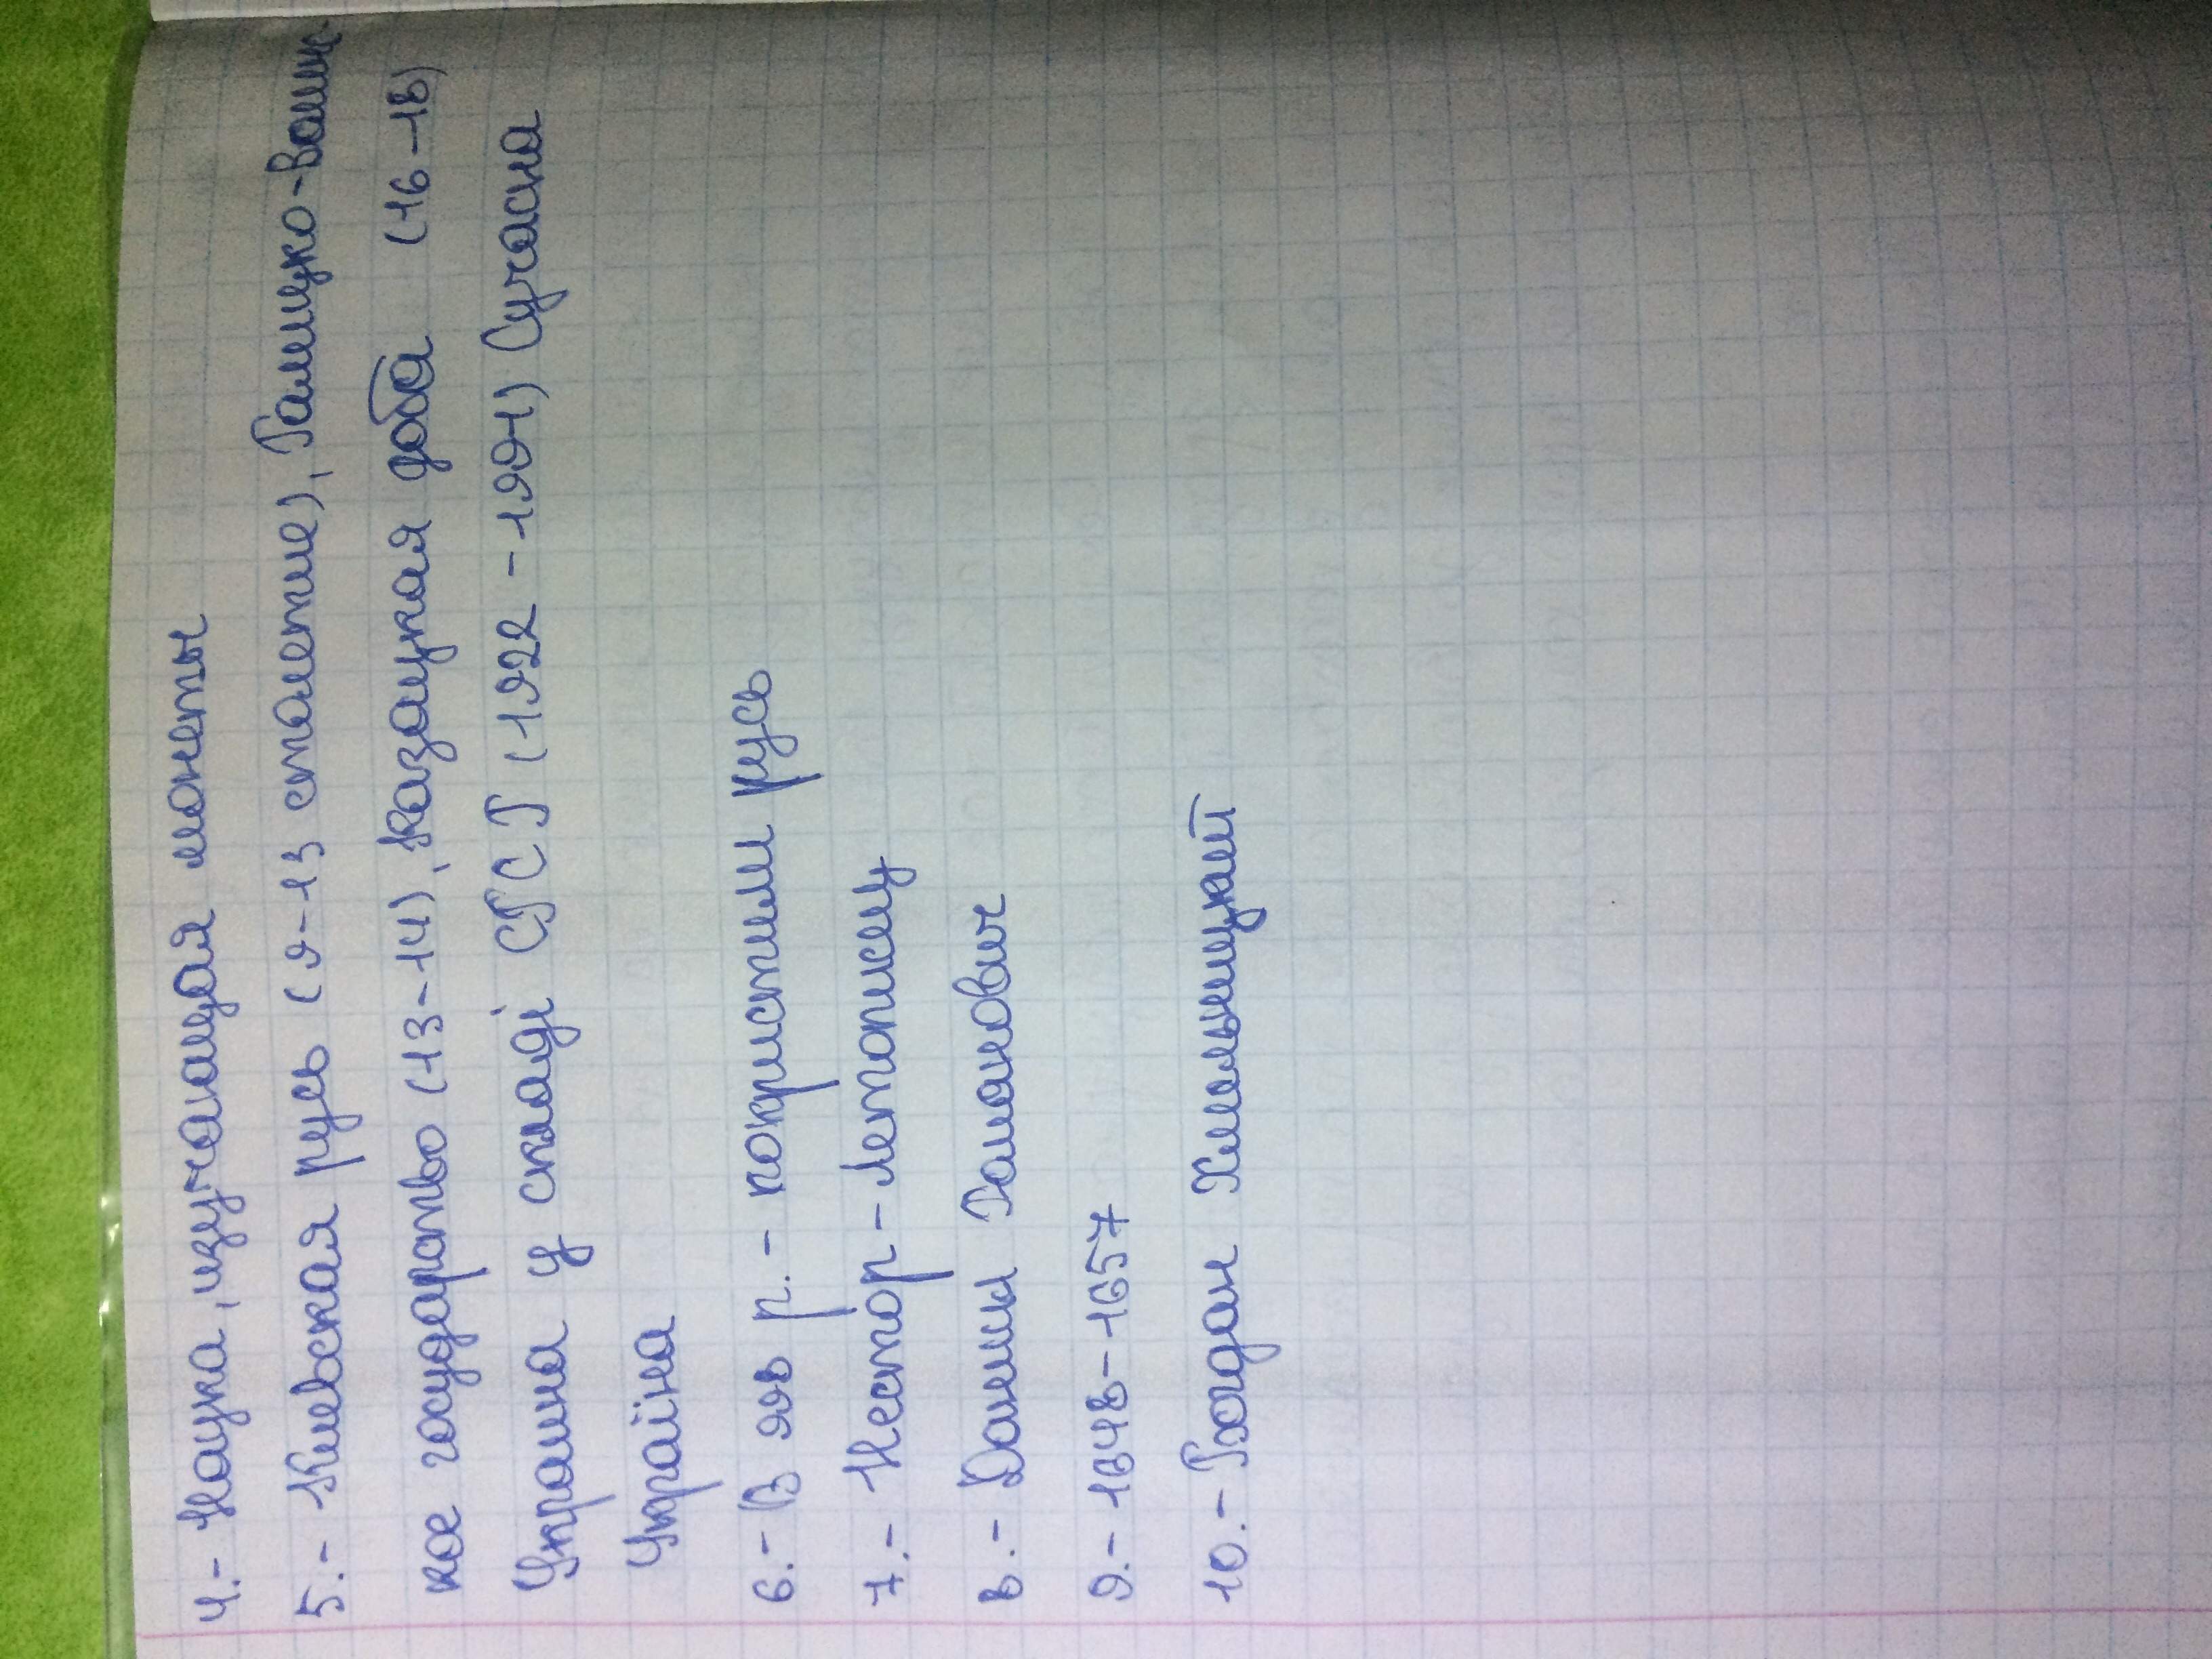 4.- Наука, изучающая монеты
5.- Киевская русь (9-13 столетие), Галицко-Волинс
кое государство (13-14), Казацкая доба (16-18)
Украина у складі СРСР (1922-1991) Сучасна
Україна
6.- В 998 р.- покристили русь
7.- Нестор - Летописец
8.- Даниил Романович
9.- 1648-1657
10.- Богдан Хмельницкий